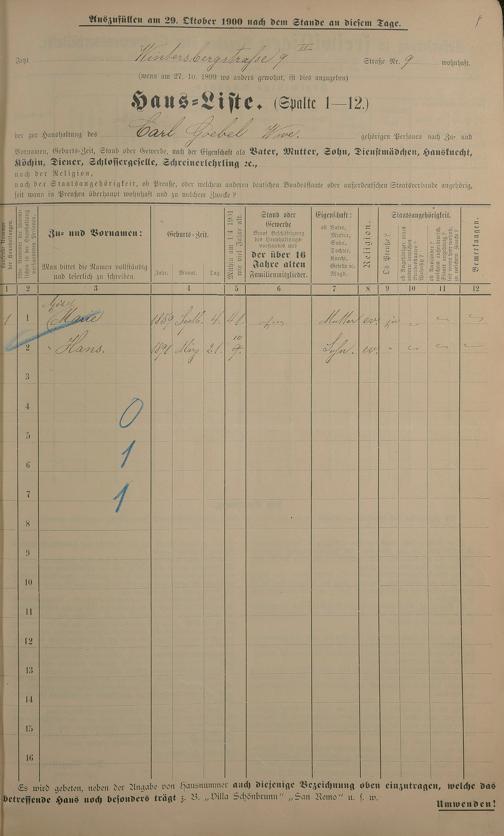 Auszufüllen am 29. Oktober 1900 nach dem Stande an diesem Tage.
Jetzt Wintersbergstraße 9 III Straße Nr. 9 wohnhaft.
(wenn am 27. 10. 1899 wo anders gewohnt, ist dies anzugeben)
Haus-Liste. (Spalte 1—12.)
der zur Haushaltung des Carl Goebel Wwe. gehörigen Personen nach Zu- und
Vornamen, Geburts-Zeit, Stand oder Gewerbe, nach der Eigenschaft als Vater, Mutter, Sohn, Dienstmädchen, Hausknecht,
Köchin, Diener, Schlossergeselle, Schreinerlehrling ꝛc.,
nach der Religion,
nach der Staatsangehörigkeit, ob Preuße, oder welchem anderen deutschen Bundesstaate oder außerdeutschen Staatsverbande angehörig,
seit wann in Preußen überhaupt wohnhaft und zu welchem Zwecke?
Zu- und Vornamen:
Man bittet die Namen vollständig
und leserlich zu schreiben.
Geburts-Zeit.
Jahr. Monat. Tag.
Mithin am 1./4. 1901
wie viel Jahre alt.
Stand oder
Gewerbe
des Haushaltungs-
vorstandes und
der über 16
Jahre alten
Familienmitglieder.
Eigenschaft:
ob Vater,
Mutter,
Sohn,
Tochter,
Knecht,
Geselle o.
Magd.
Religion.
Staatsangehörigkeit.
Ob Preuße?
Bemerkungen.
1 2 3 4 5 6 7 8 9 10 11 12
1 1 Marie 1859 Septb. 4. 41 Mutter ev. ja
2 " Hans. 1891 März 21. Sohn. ev.
3
4 0
5
6 1
7 1
8
9
10
11
12
13
14
15
16
Es wird gebeten, neben der Angabe von Hausnummer auch diejenige Bezeichnung oben einzutragen, welche das
betreffende Haus noch besonders trägt z. B. „Villa Schönbrunn" „San Remo" u. s. w.
Umwenden!